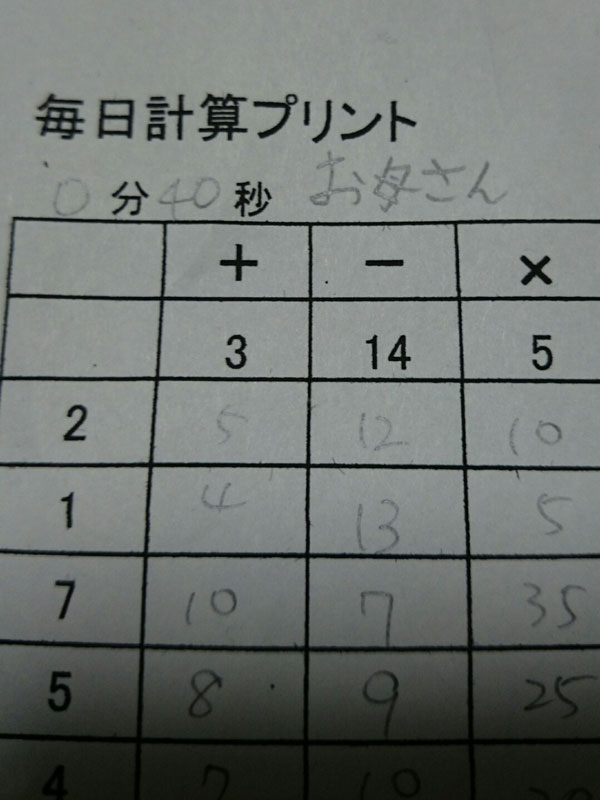 毎日計算プリント
0分40秒 お母さん
+ − ×
3 14 5
2 5 12 10
1 4 13 5
7 10 7 35
5 8 9 25
4 7 10